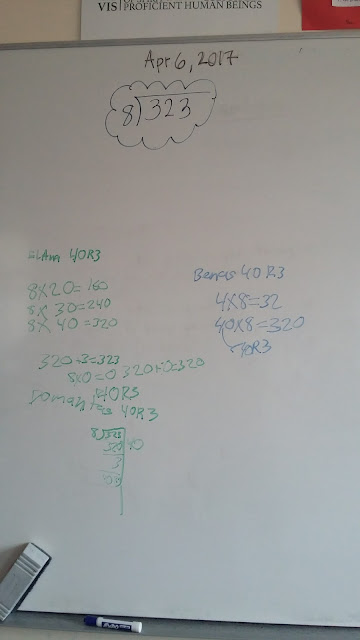 VIS
PROFICIENT HUMAN BEINGS
Apr 6, 2017
8)323
40R3
8x20=160
8x30=240
8x40=320
320+3=323
8x0=0 320+0=320
40R3
40R3
8)323
320 40
3
Benas 40R3
4x8=32
40x8=320
40R3
EXPO